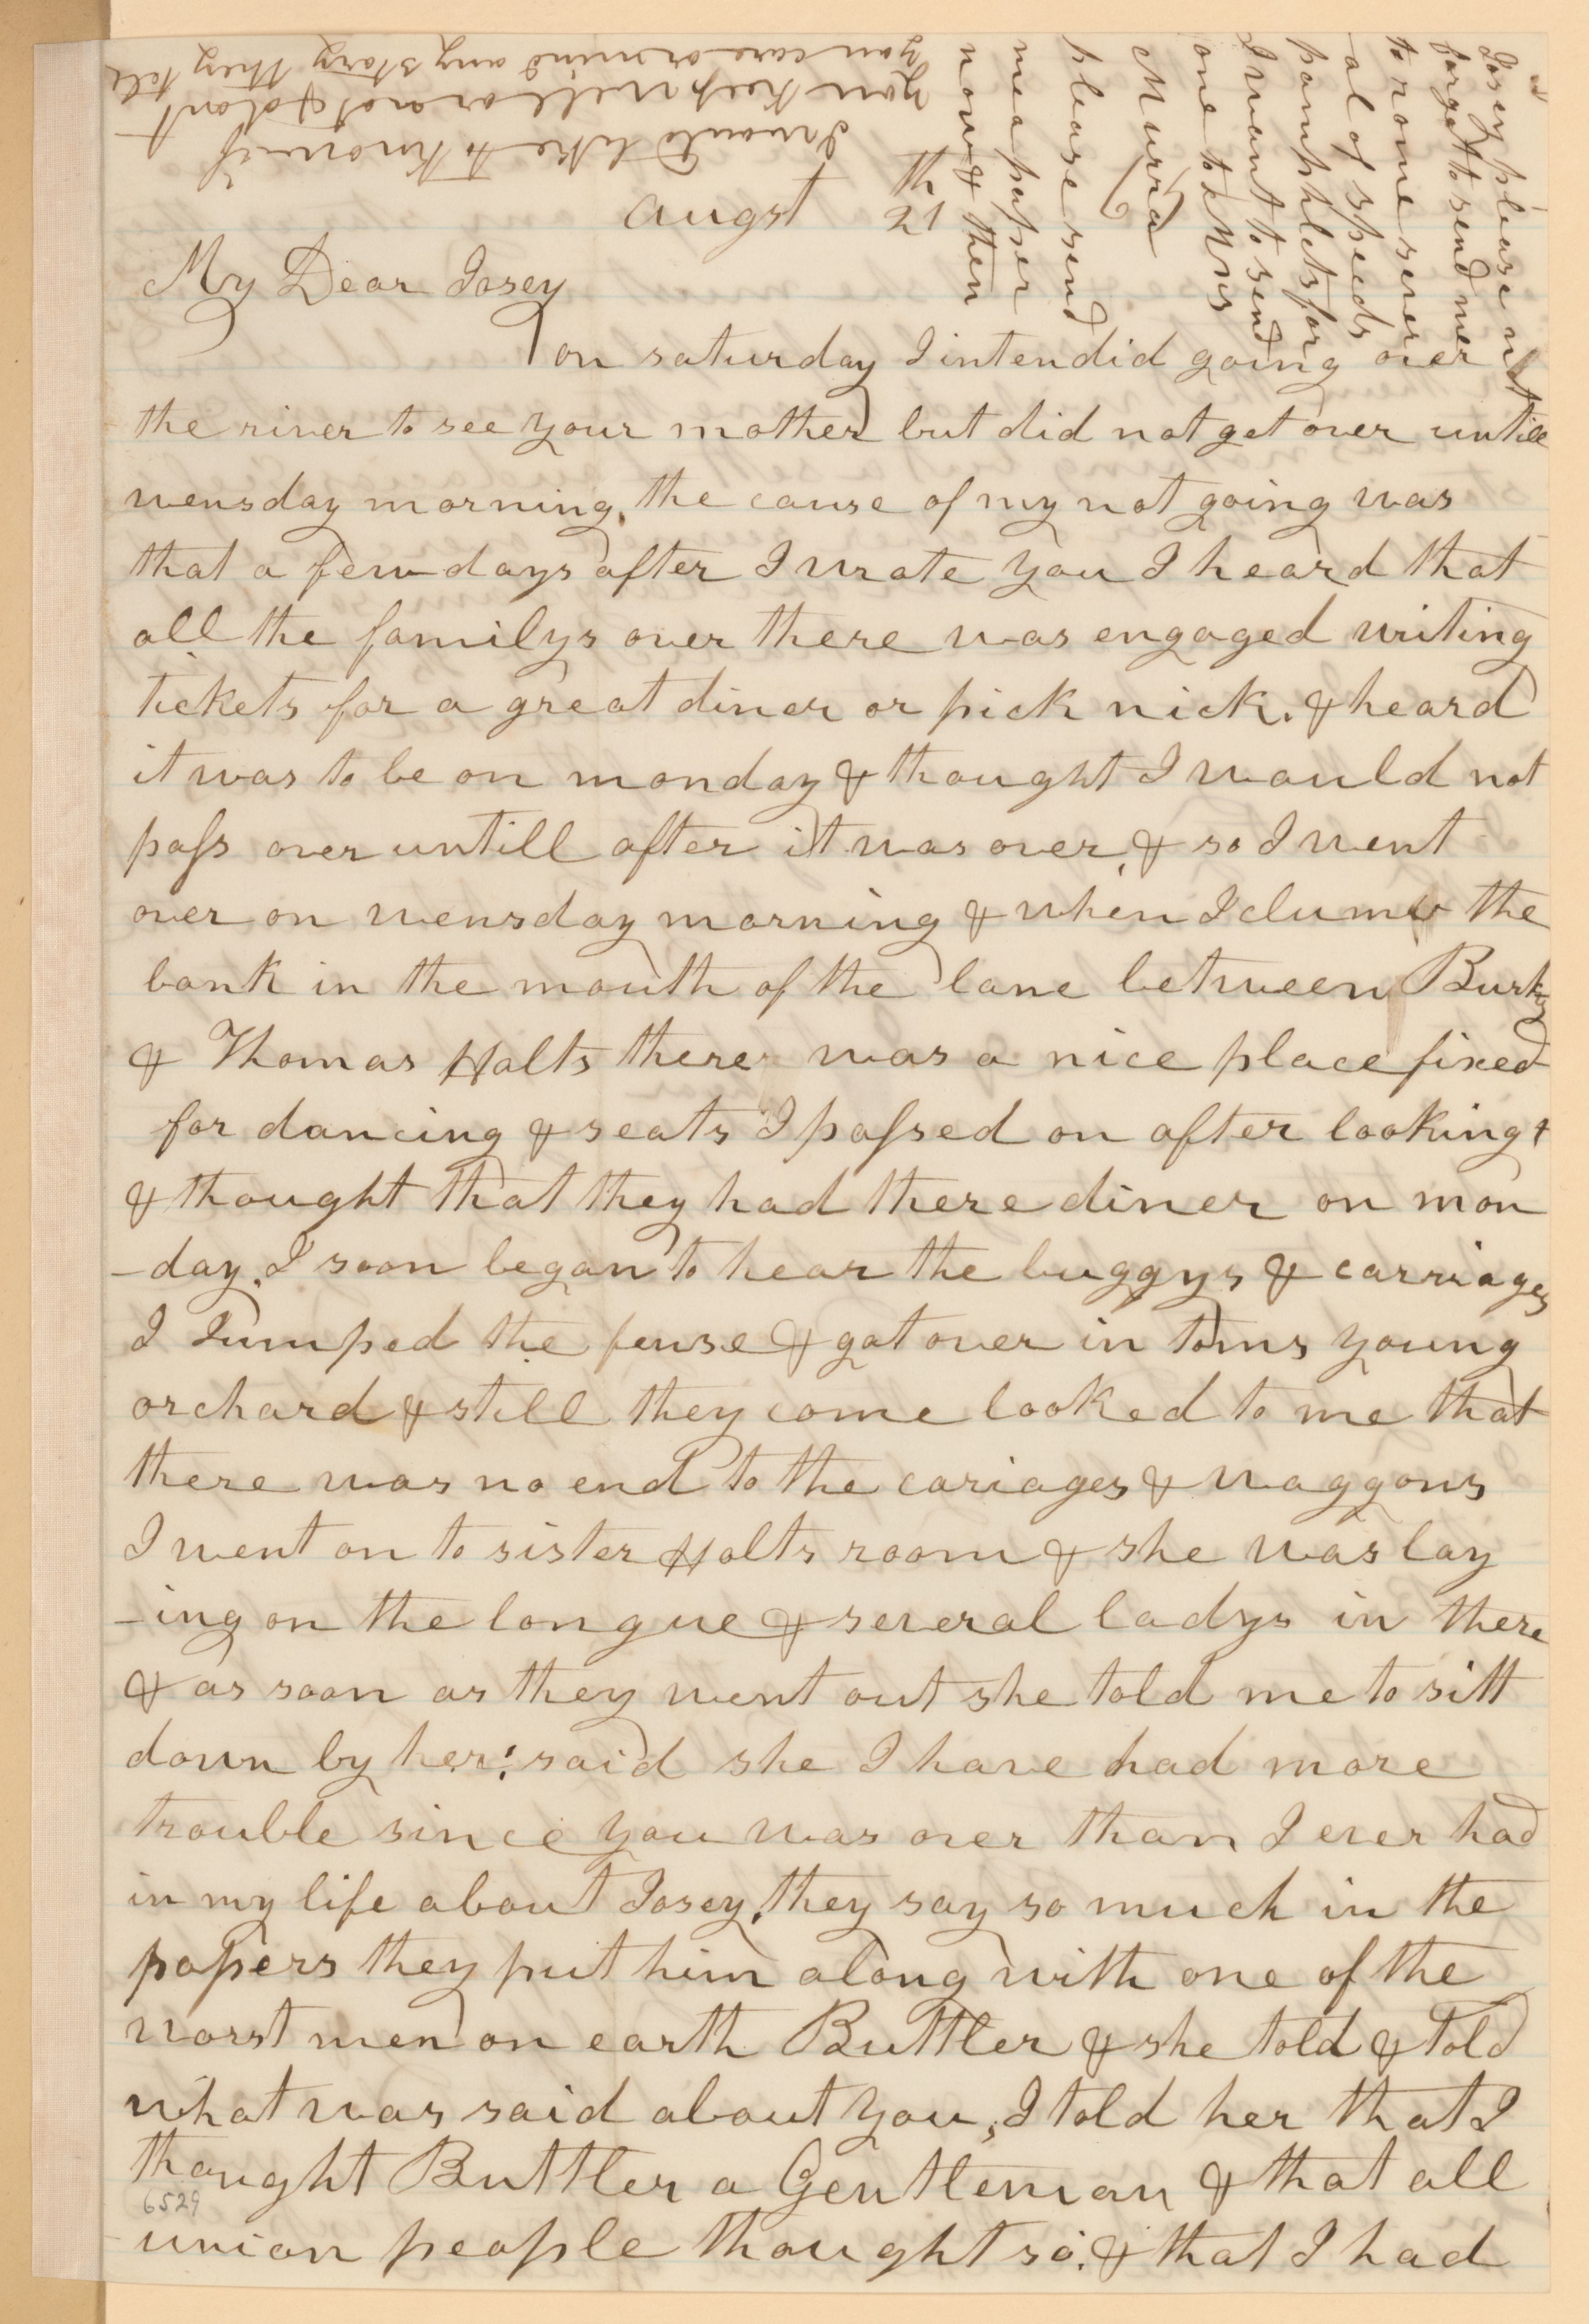 augst 21th
My Dear Josey
on saturday I intendid going over
the river to see your mother but did not get over untill
wensday morning, the cause of my not going was
that a few days after I wrote you I heard that
all the familys over there was engaged writing
tickets for a great diner or pick nick. & heard
it was to be on monday & thought I would not
pass over untill after it was over, & so I went
over on wensday morning & when I clumb the
bank in the mouth of the lane between Burks
& Thomas Holts there was a nice place fixed
for dancing & seats I passed on after looking &
& thought that they had there diner on mon
-day, I soon began to hear the buggys & carriages
I Jumped the fense & got over in toms young
orchard & still they come looked to me that
there was no end to the cariages & waggons
I went on to sister Holts room & she was lay
-ing on the longue & several ladys in there
& as soon as they went out she told me to sitt
down by her; said she I have had more
trouble since you was over than I ever had
in my life about Josey, they say so much in the
papers they put him along with one of the
worst men on earth Buttler & she told & told
what was said about you, I told her that I
thought Buttler a Gentleman & that all
union people thought so, & that I had
6529
Josey please not
forget to send me
to rome sever
-al of speeds
pamphlets for
I want to send
one to Mrs
Murra
please send
me a paper
now & then
I would like to know if
you keep well or not & dont
you care or mind any story they tell